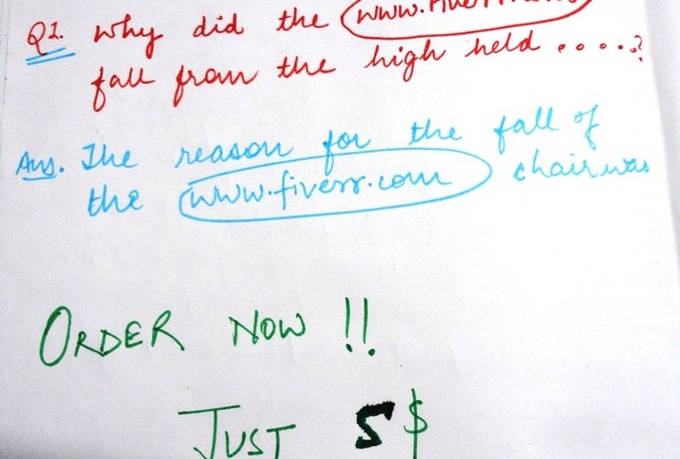 Q1. Why did the www.fiverr.com
fall from the high held .....?
Ans. The reason for the fall of
the www.fiverr.com chair was
ORDER NOW !!
JUST 5 $